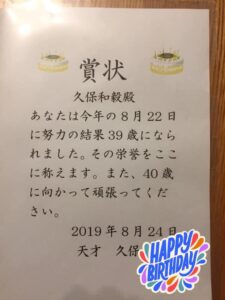 賞状
久保和毅殿
あなたは今年の8月22日
に努力の結果39歳になら
れました。その栄誉をここ
に称えます。また、40歳
に向かって頑張ってくだ
さい。
2019年8月24日
天才 久保
HAPPY
BIRTHDAY